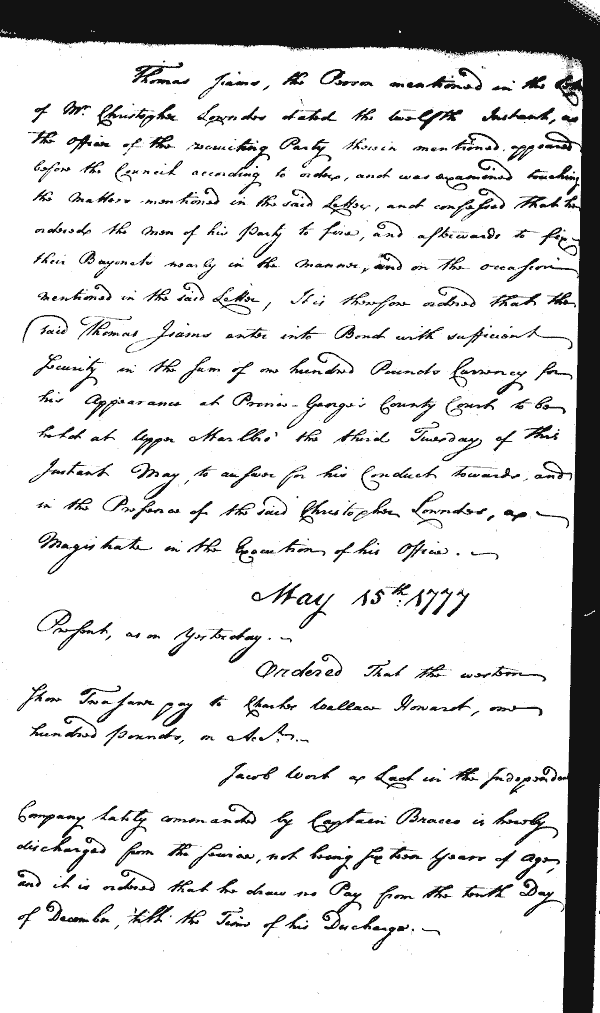 Thomas Jiams, the Person mentioned in the
of Mr. Christopher Lowndes dated the twelfth Instant, as
the Officer of the recruiting Party therein mentioned appeared
before the Council according to order, and was examined touching
the Matters mentioned in the said Letter, and confessed that he
ordered the Men of his Party to fire, and afterwards to fix
their Bayonets nearly in the manner, and on the occasion
mentioned in the said Letter, It is therefore ordered that the
said Thomas Jiams enter into Bond with sufficient
Security in the Sum of one hundred Pounds Currency for
his Appearance at Prince-George's County Court to be
held at Upper Marlbro' the third Tuesday of this
Instant May, to answer for his Conduct towards, and
in the Presence of the said Christopher Lowndes, a
Magistrate in the Execution of his Office.
May 15th. 1777
Present, as on Yesterday.
Ordered That the western
Shore Treasurer pay to Charles Wallace Howard, one
hundred pounds, on Acct.
Jacob Work a Lad in the Independent
Company lately commanded by Captain Bracco is hereby
discharged from the Service, not being sixteen Years of Age,
and it is ordered that he draw no Pay from the tenth Day
of December, 'till the Time of his Discharge.